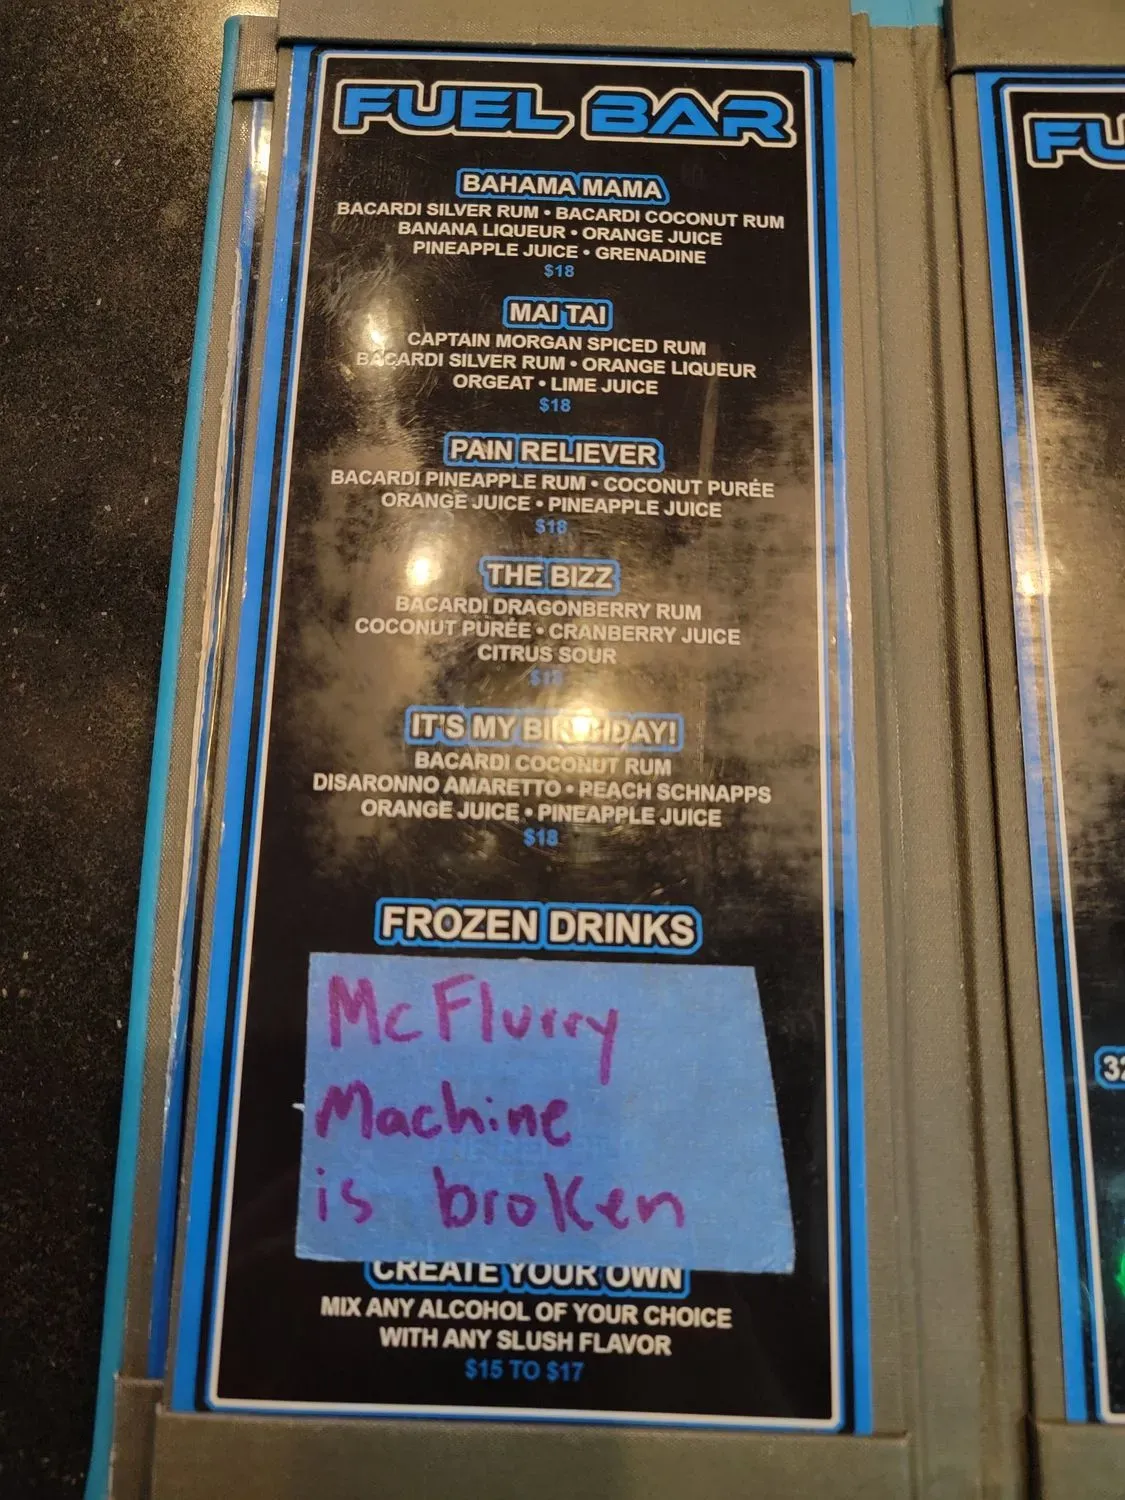 FUEL BAR
BAHAMA MAMA
BACARDI SILVER RUM • BACARDI COCONUT RUM
BANANA LIQUEUR • ORANGE JUICE
PINEAPPLE JUICE • GRENADINE
$18
MAI TAI
CAPTAIN MORGAN SPICED RUM
BACARDI SILVER RUM • ORANGE LIQUEUR
ORGEAT • LIME JUICE
$18
PAIN RELIEVER
BACARDI PINEAPPLE RUM • COCONUT PURÉE
ORANGE JUICE • PINEAPPLE JUICE
$18
THE BIZZ
BACARDI DRAGONBERRY RUM
COCONUT PURÉE • CRANBERRY JUICE
CITRUS SOUR
IT'S MY BIRTHDAY!
BACARDI COCONUT RUM
DISARONNO AMARETTO • PEACH SCHNAPPS
ORANGE JUICE • PINEAPPLE JUICE
$18
FROZEN DRINKS
McFlurry
Machine
is broken
CREATE YOUR OWN
MIX ANY ALCOHOL OF YOUR CHOICE
WITH ANY SLUSH FLAVOR
$15 TO $17
FU
32